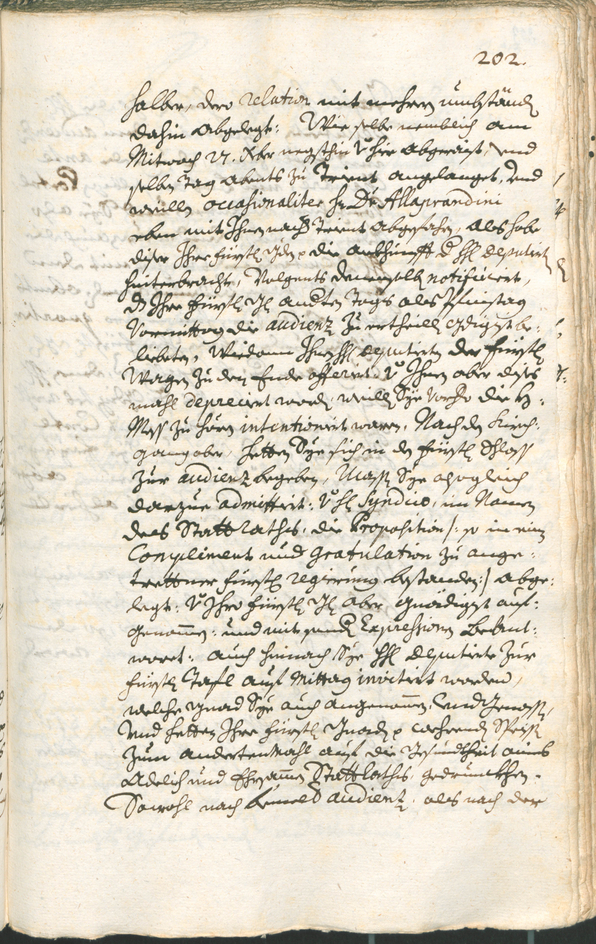 202.
halber, dero relation mit mehrern umbständ
dahin abgelegt: Wie selbe nemblich am
Mitwoch 27. Xber negsthin hie abgeraist, und
selben Tag abents zu Trient angelanget, und
weillen occasionaliter H: Dr Allaprandini
eben mit Ihnen nach Trient abgefahrn, als habe
diser Ihro fürstl: die ankhunfft d HH: deputirten
hinterbracht, Volgents denenselben notificiert,
Ihro fürstl: andten Tags als Pfinstag
Vormittag die audienz zu ertheillen gdigist be-
liebeten, Wie dann Ihnen HH: deputirten der fürstl:
Wagen zu dem Ende offeriert: Ihnen aber dises
mahl depreciert worden, weillen Sye vorhero die H:
Mess zu hören intentioniert waren, Nach dem Kirch-
gang aber, hetten Sye sich in das fürstl: Schloss
zur audienz begeben, Massen Sye alsogleich
darzue admittiert: H: Syndico, im Namen
des Stattraths, die Proposition /: so in ein
Compliment und Gratulation zu ange-
trettner fürstl: regierung bestanden :/ abge-
legt: Ihro fürstl: aber gnädigst auf-
genommen: und mit Expressionen beant-
wort: auch hernach Sye HH: deputirte zur
fürstl: Tafl auf Mittag invitirt worden,
welche gnad Sye auch angenommen, und genossen,
Und hetten Ihro fürstl: Gnaden wehrend
zum andertenmahl auf die Gesundtheit eines
Adelich und Ehrsamen Stattraths gedrunckhen.
Sowohl nach audienz, als nach der